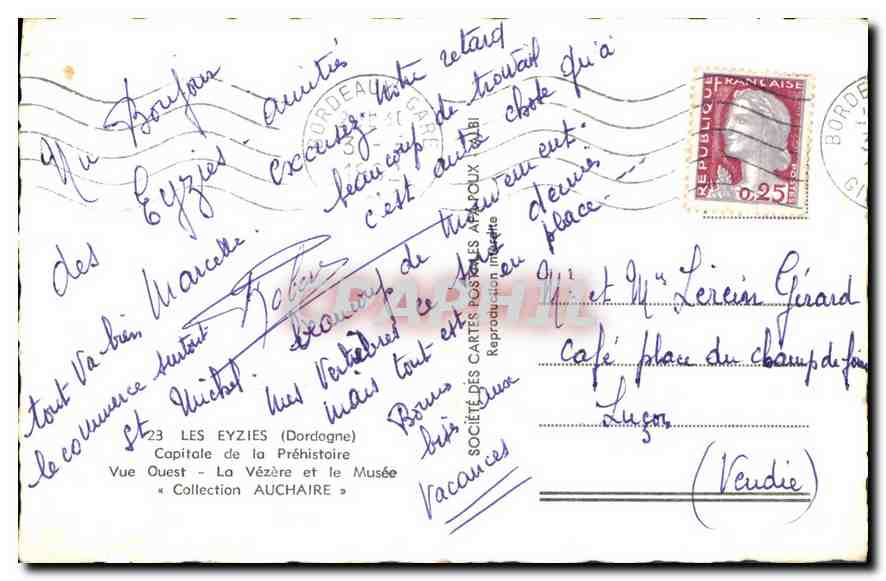 Un Bonjour
des Eyzies. amitiés
Marcelle. excusez. notre retard
beaucoup de travail
c'est autre chose qu'à
tout va bien
le commerce surtout
St Michel. beaucoup de mouvement.
mes vertèbres ce sont
mais tout est en place ----
Bonnes
aux
Vacances
23 LES EYZIES (Dordogne)
Capitale de la Préhistoire
Vue Ouest - La Vézère et le Musée
« Collection AUCHAIRE »
SOCIÉTÉ DES CARTES POSTALES APA-POUX - ALBI
Reproduction Interdite
CPARHIL
BORDEAUX GARE
REPUBLIQUE FRANÇAISE
POSTES
0,25
BORDE
GI
Mr et Mme Lercin Gérard
Café place du champ de foire
Luçon
(Vendée)